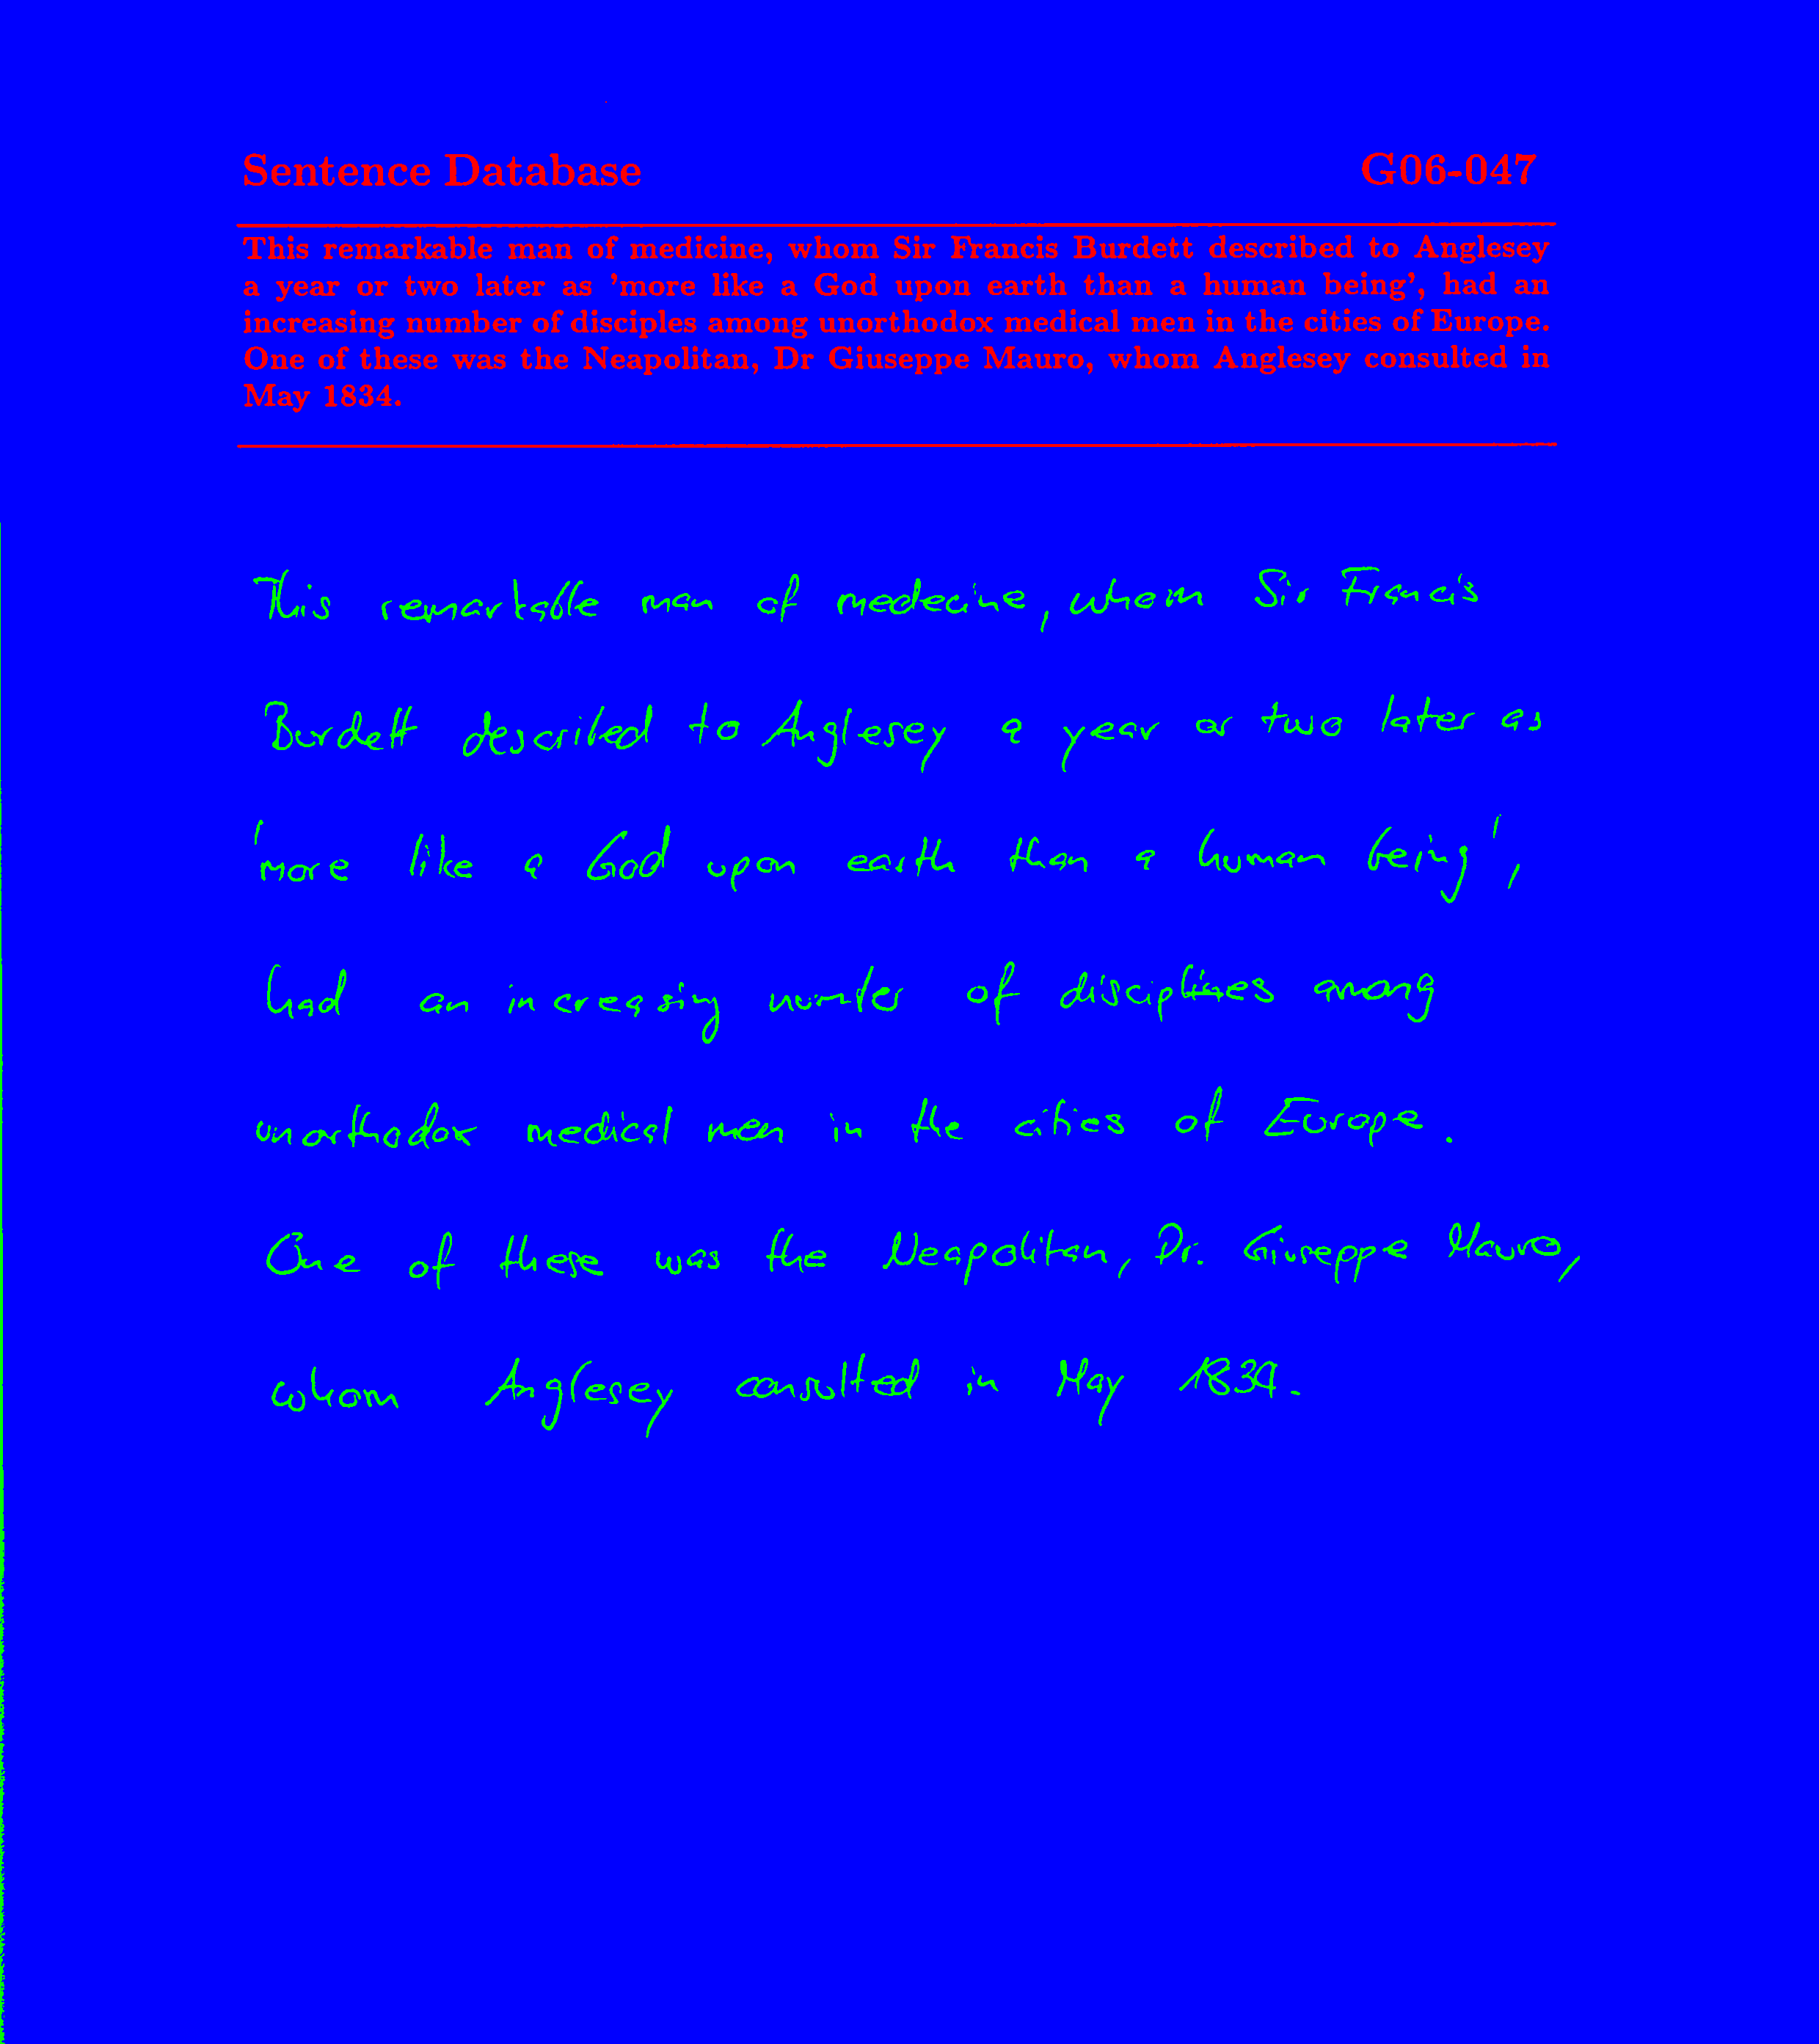 Sentence Database G06-047
This remarkable man of medicine, whom Sir Francis Burdett described to Anglesey
a year or two later as 'more like a God upon earth than a human being', had an
increasing number of disciples among unorthodox medical men in the cities of Europe.
One of these was the Neapolitan, Dr Giuseppe Mauro, whom Anglesey consulted in
May 1834.
This remarkable man of medecine, whom Sir Francis
Burdett described to Anglesey a year or two later as
'more like a God upon earth than a human being',
had an increasing number of disciplines among
unorthodox medical men in the cities of Europe.
One of these was the Neapolitan, Dr. Giuseppe Mauro,
whom Anglesey consulted in May 1834.